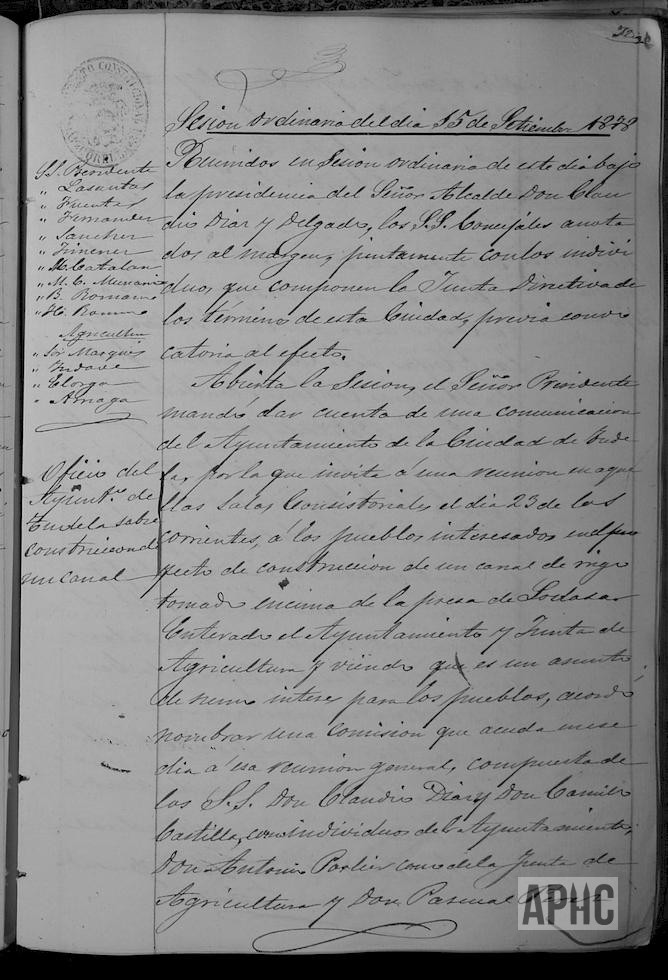 Sesion ordinaria del dia 15 de Setiembre 1878
SS. Presidente
" Lasantas
" Fuentes
" Fernandez
" Sanchez
" Jimenez
" M. Catalan
" B. Romano
Agricultura
" Sor Marques
" Yndave
" Elorga
" Arnaga
Reunidos en Sesion ordinaria de este dia bajo
la presidencia del Señor Alcalde Don Clau
dio Diaz y Delgado, los S.S. Concejales anota
dos al margen, juntamente con los indivi
duos que componen la Junta Directiva de
los término de esta Ciudad, previa convo
catoria al efecto.
Abierta la Sesion, el Señor Presidente
mandó dar cuenta de una comunicacion
del Ayuntamiento de la Ciudad de Tude
la, por la que invita á una reunion en aque
llas Salas Consistoriales el dia 23 de los
corrientes, á los pueblos interesados en el pro
yecto de construccion de un canal de riego
tomado encima de la presa de Lodosa
Enterado el Ayuntamiento y Junta de
Agricultura y viendo que es un asunto
de sumo interes para los pueblos, acordó
nombrar una comision que acuda en ese
dia á esa reunion general, compuesta de
los S.S. Don Claudio Diaz y Don Camilo
Castilla, como individuos del Ayuntamiento,
Don Antonio Parlier como de la Junta de
Agricultura y Don Pascual
Oficio del
Ayuntº de
Tudela sobre
construccion de
un canal
APHC